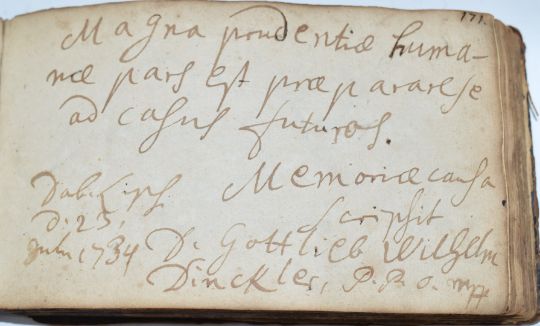 171.
Magna prudentiæ huma-
næ pars est præpararese
ad casus futuros.
Dab. Lips
d. 23.
Jun. 1734
Memoriæ causa
scripsit
D. Gottlieb Wilhelm
Dinckler, P. P. O. mpp